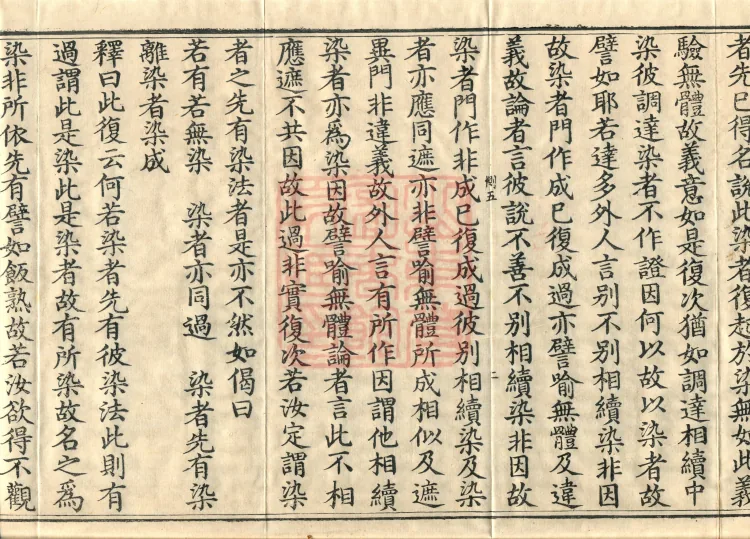 者先已得名說此染者復起於染無如此義
驗無體故義意如是復次猶如調達相續中
染彼調達染者不作證因何以故以染者故
譬如耶若達多外人言別不別相續染非因
故染者門作成已復成過亦譬喻無體及違
義故論者言彼說不善不別相續染非因故
惻五
二
染者門作非成已復成過彼別相續染及染
者亦應同遮亦非譬喻無體所成相似及遮
異門非違義故外人言有所作因謂他相續
染者亦為染因故譬喻無體論者言此不相
應遮不共因故此過非實復次若汝定謂染
者之先有染法者是亦不然如偈曰
若有若無染　染者亦同過　染者先有染
離染者染成
釋曰此復云何若染者先有彼染法此則有
過謂此是染此是染者故有所染故名之為
染非所依先有譬如飯熟故若汝欲得不觀